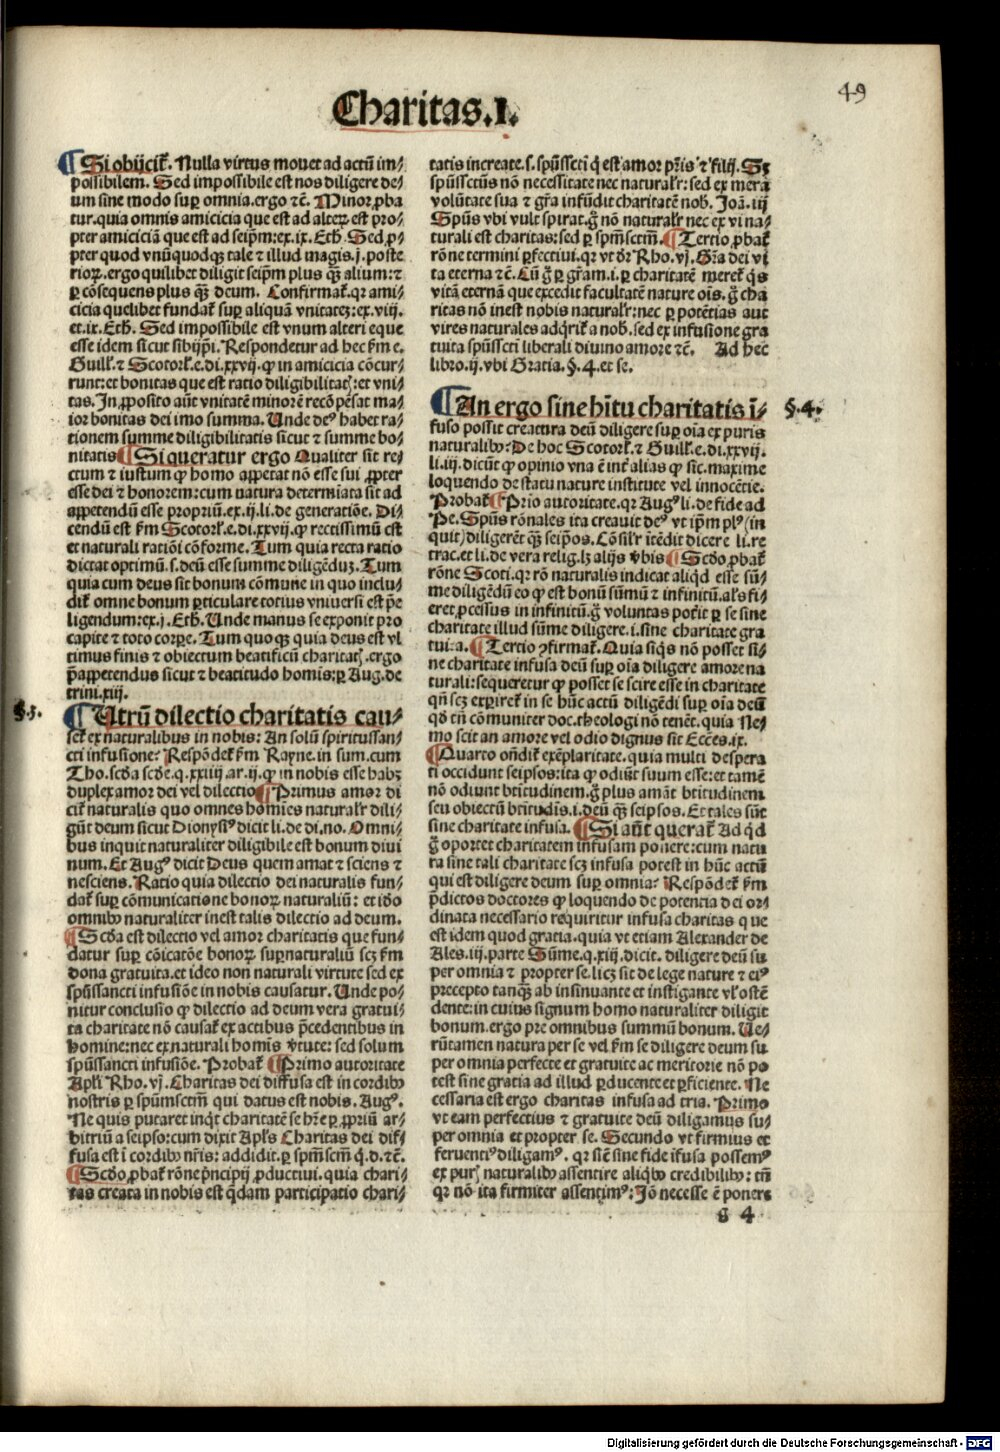 49
Charitas.I.
¶ Si obijcit̄. Nulla virtus mouet ad actū im⸗
possibilem. Sed impossibile est nos diligere de⸗
um sine modo suꝑ omnia.ergo ⁊c̄. Minor ꝓba
tur.quia omnis amicicia que est ad alteꝝ est pro⸗
pter amiciciā que est ad seip̄m:ex.ix.Eth. Sed ꝓ⸗
pter quod vnūquodqꝫ tale ⁊ illud magis.j.poste
rioꝝ.ergo quilibet diligit seip̄m plus qꝫ alium:⁊
ꝑ cōsequens plus qꝫ deum. Confirmat̄.qꝛ ami⸗
cicia quelibet fundat̄ suꝑ aliquā vnitatez:ex.viij.
et.ix.Eth. Sed impossibile est vnum alteri eque
esse idem sicut sibijp̄i. Respondetur ad hec ẜm e.
Guill.⁊ Scotorł.e.di.xxvij.ꝙ in amicicia cōcur⸗
runt:et bonitas que est ratio diligibilitatꝭ:et vni⸗
tas. In ꝓposito aūt vnitatē minorē recōpēsat ma⸗
ior bonitas dei imo summa. Unde deꝰ habet ra⸗
tionem summe diligibilitatis sicut ⁊ summe bo⸗
nitatis ¶ Si queratur ergo Qualiter sit re⸗
ctum ⁊ iustum ꝙ homo appetat nō esse sui ꝓpter
esse dei ⁊ honorem:cum natura determiata sit ad
appetendū esse propriū.ex.ij.li.de generatiōe. Di⸗
cendū est ẜm Scotorł.e.di.xxvij.ꝙ rectissimū est
et naturali ratiōi cōforme. Tum quia recta ratio
dictat optimū.s.deū esse summe diligēduꝫ. Tum
quia cum deus sit bonum cōmune in quo inclu⸗
dit̄ omne bonum ꝑticulare totius vniuersi est p̄e
ligendum:ex.j.Eth. Unde manus se exponit pro
capite ⁊ toto corꝑe. Tum quoqꝫ quia deus est vl
timus finis ⁊ obiectum beatificū charitatꝭ.ergo
p̄appetendus sicut ⁊ beatitudo homis:ꝑ Aug.de
trini.xiij.
§.3.
¶ Utrū dilectio charitatis cau⸗
set̄ ex naturalibus in nobis: An solū spiritussan⸗
cti infusione? Respōdet̄ ẜm Rayne.in sum.cum
Tho.scďa scďe.q.xxiiij.ar.ij.ꝙ in nobis esse habꝫ
duplex amor dei vel dilectio ¶ Primus amor di
cit̄ naturalis quo omnes homīes naturalr̄ dili⸗
gūt deum sicut Dionysiꝰ dicit li.de di.no. Omni⸗
bus inquit naturaliter diligibile est bonum diui
num. Et Augꝰ dicit Deus quem amat ⁊ sciens ⁊
nesciens. Ratio quia dilectio dei naturalis fun⸗
dat̄ suꝑ cōmunicatione bonoꝝ naturaliū: et iďo
omnibꝰ naturaliter inest talis dilectio ad deum.
¶ Scďa est dilectio vel amor charitatis que fun⸗
datur suꝑ cōicatōe bonoꝝ suꝑnaturaliū scꝫ ẜm
dona gratuita.et ideo non naturali virtute sed ex
spūssancti infusiōe in nobis causatur. Unde po⸗
nitur conclusio ꝙ dilectio ad deum vera gratui⸗
ta charitate nō causat̄ ex actibus p̄cedentibus in
homine:nec ex naturali homīs v̓tute: sed solum
spūssancti infusiōe. Probat̄ ¶ Primo autoritate
Apłi Rho.vj. Charitas dei diffusa est in cordibꝰ
nostris ꝑ spūmsctm̄ qui datus est nobis. Augꝰ.
Ne quis putaret inqt̄ charitatē se hr̄e ꝑ ꝓpriū ar⸗
bitriū a seipso:cum dixit Apłs Charitas dei dif⸗
fusa est ī cordibꝰ nr̄is: addidit.ꝑ spm̄scm̄ q.d.⁊c̄.
¶ Scďo ꝓbat̄ rōne p̄ncipij ꝓductiui.quia chari⸗
tas creata in nobis est q̄dam participatio chari⸗
tatis increate.s.spūssc̄ti q̄ est amor pr̄is ⁊ filij. Sꝫ
spūssctūs nō necessitate nec naturalr̄: sed ex mera
volūtate sua ⁊ gr̄a infūdit charitatē nob. Joā.iij
Spūs vbi vult spirat.ḡ nō naturalr̄ nec ex vi na⸗
turali est charitas:sed ꝑ spm̄sctm̄. ¶ Tertio ꝓbat̄
rōne termini ꝑfectiui.qꝛ vt dr̄ Rho.vj. Gr̄a dei vi
ta eterna ⁊c̄. Cū ḡ ꝑ gr̄am.i.ꝑ charitatē meret̄ q̄s
vitā eternā que excedit facultatē nature oīs.ḡ cha
ritas nō inest nobis naturalr̄:nec ꝑ potētias aut
vires naturales adq̄rit̄ a nob.sed ex infusione gra
tuita spūssc̄ti liberali diuino amore ⁊c̄. Ad hec
libro.ij.vbi Gratia.§.4.et se.
¶ An ergo sine hītu charitatis ī⸗
§.4.
fuso possit creatura deū diligere suꝑ oīa ex puris
naturalibꝰ? De hoc Scotorł.⁊ Guilł.e.di.xxvij.
li.iij.dicūt ꝙ opinio vna ē int̄ alias ꝙ sic.maxime
loquendo de statu nature institute vel innocētie.
Probat̄ ¶ Prīo autoritate.qꝛ Augꝰ li.de fide ad
Pe. Spūs rōnales ita creauit deꝰ vt ip̄m plꝰ (in
quit) diligerēt qꝫ seip̄os. Cōsilr̄ itēdit dicere li.re
trac.et li.de vera relig.lꝫ alijs v̓bis ¶ Scďo ꝓbat̄
rōne Scoti.qꝛ rō naturalis indicat aliqd̄ esse sū⸗
me diligēdū eo ꝙ est bonū sūmū ⁊ infinitū.al̄s fi⸗
eret ꝓcessus in infinitū.ḡ voluntas pot̄it ꝑ se sine
charitate illud sūme diligere.i.sine charitate gra
tuita. ¶ Tertio ꝯfirmat̄. Quia siq̄s nō posset si⸗
ne charitate infusa deū suꝑ oīa diligere amore na
turali:sequeretur ꝙ posset se scire esse in charitate
qn̄ scꝫ exꝑiret̄ in se hūc actū diligēdi suꝑ oīa deū
qď tn̄ cōmuniter doc.theologi nō tenēt.quia Ne⸗
mo scit an amore vel odio dignus sit Ecces.ix.
¶ Quarto oñdit̄ exēplaritate.quia multi despera
ti occidunt seipsos:ita ꝙ odiūt suum esse:et tamē
nō odiunt btītudinem.ḡ plus amāt btītudinem
seu obiectū btītudīs.i.deū qꝫ seipsos. Et tales sūt
sine charitate infusa. ¶ Si aūt querat̄ Ad qd̄
ḡ oportet charitatem infusam ponere:cum natu
ra sine tali charitate scꝫ infusa potest in hūc actū
qui est diligere deum suꝑ omnia? Respōdet̄ ẜm
p̄dictos doctores ꝙ loquendo de potencia dei or⸗
dinata necessario requiritur infusa charitas q ue
est idem quod gratia.quia vt etiam Alexander de
Ales.iij.parte Sūme.q.xiij.dicit. diligere deū su
per omnia ⁊ propter se.licꝫ sit de lege nature ⁊ eiꝰ
precepto tanqꝫ ab insinuante et instigante vl̓ ostē
dente:in cuius signum homo naturaliter diligit
bonum.ergo pre omnibus summū bonum. Ue⸗
rūtamen natura per se vel ẜm se diligere deum su
per omnia perfecte et gratuite ac meritorie nō po
test sine gratia ad illud ꝑducente et ꝑficiente. Ne
cessaria est ergo charitas infusa ad tria. Primo
vt eam perfectius ⁊ gratuite deū diligamus su⸗
per omnia et propter se. Secundo vt firmius et
feruentiꝰ diligamꝰ. qꝛ siē sine fide ifusa possemꝰ
ex purꝭ naturalibꝰ assentire aliqbꝰ credibilibꝰ: tn̄
qꝛ nō ita firmiter assentimꝰ: Jō necesse ē ponere
g 4
Digitalisierung gefördert durch die Deutsche Forschungsgemeinschaft - DFG